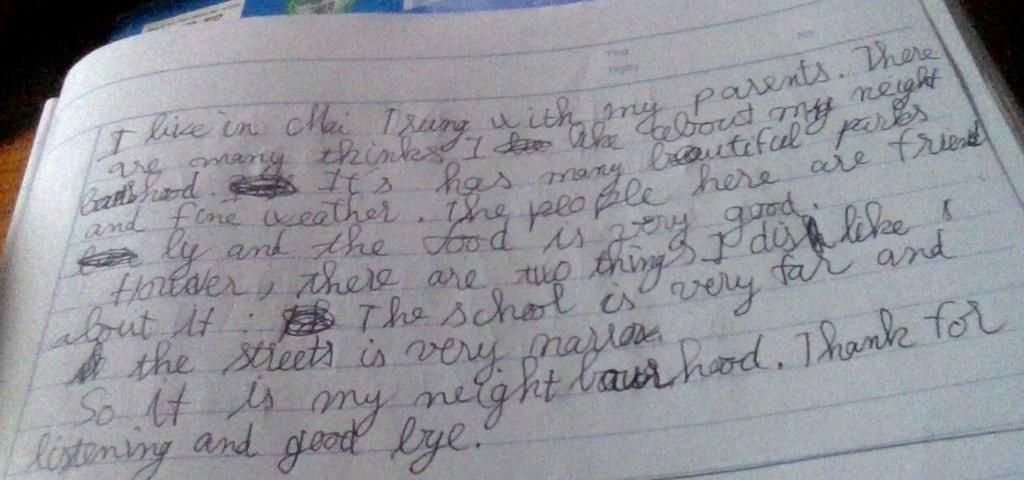 I live in Mai Trung with my parents. There
are many thinks I like about my neight
bourhood. It's has many beautiful parks
and fine weather. The people here are friend
ly and the food is very good.
However, there are two things I dislike
about it: The school is very far and
the streets is very narrow
So it is my neight bourhood. Thank for
listening and good bye.